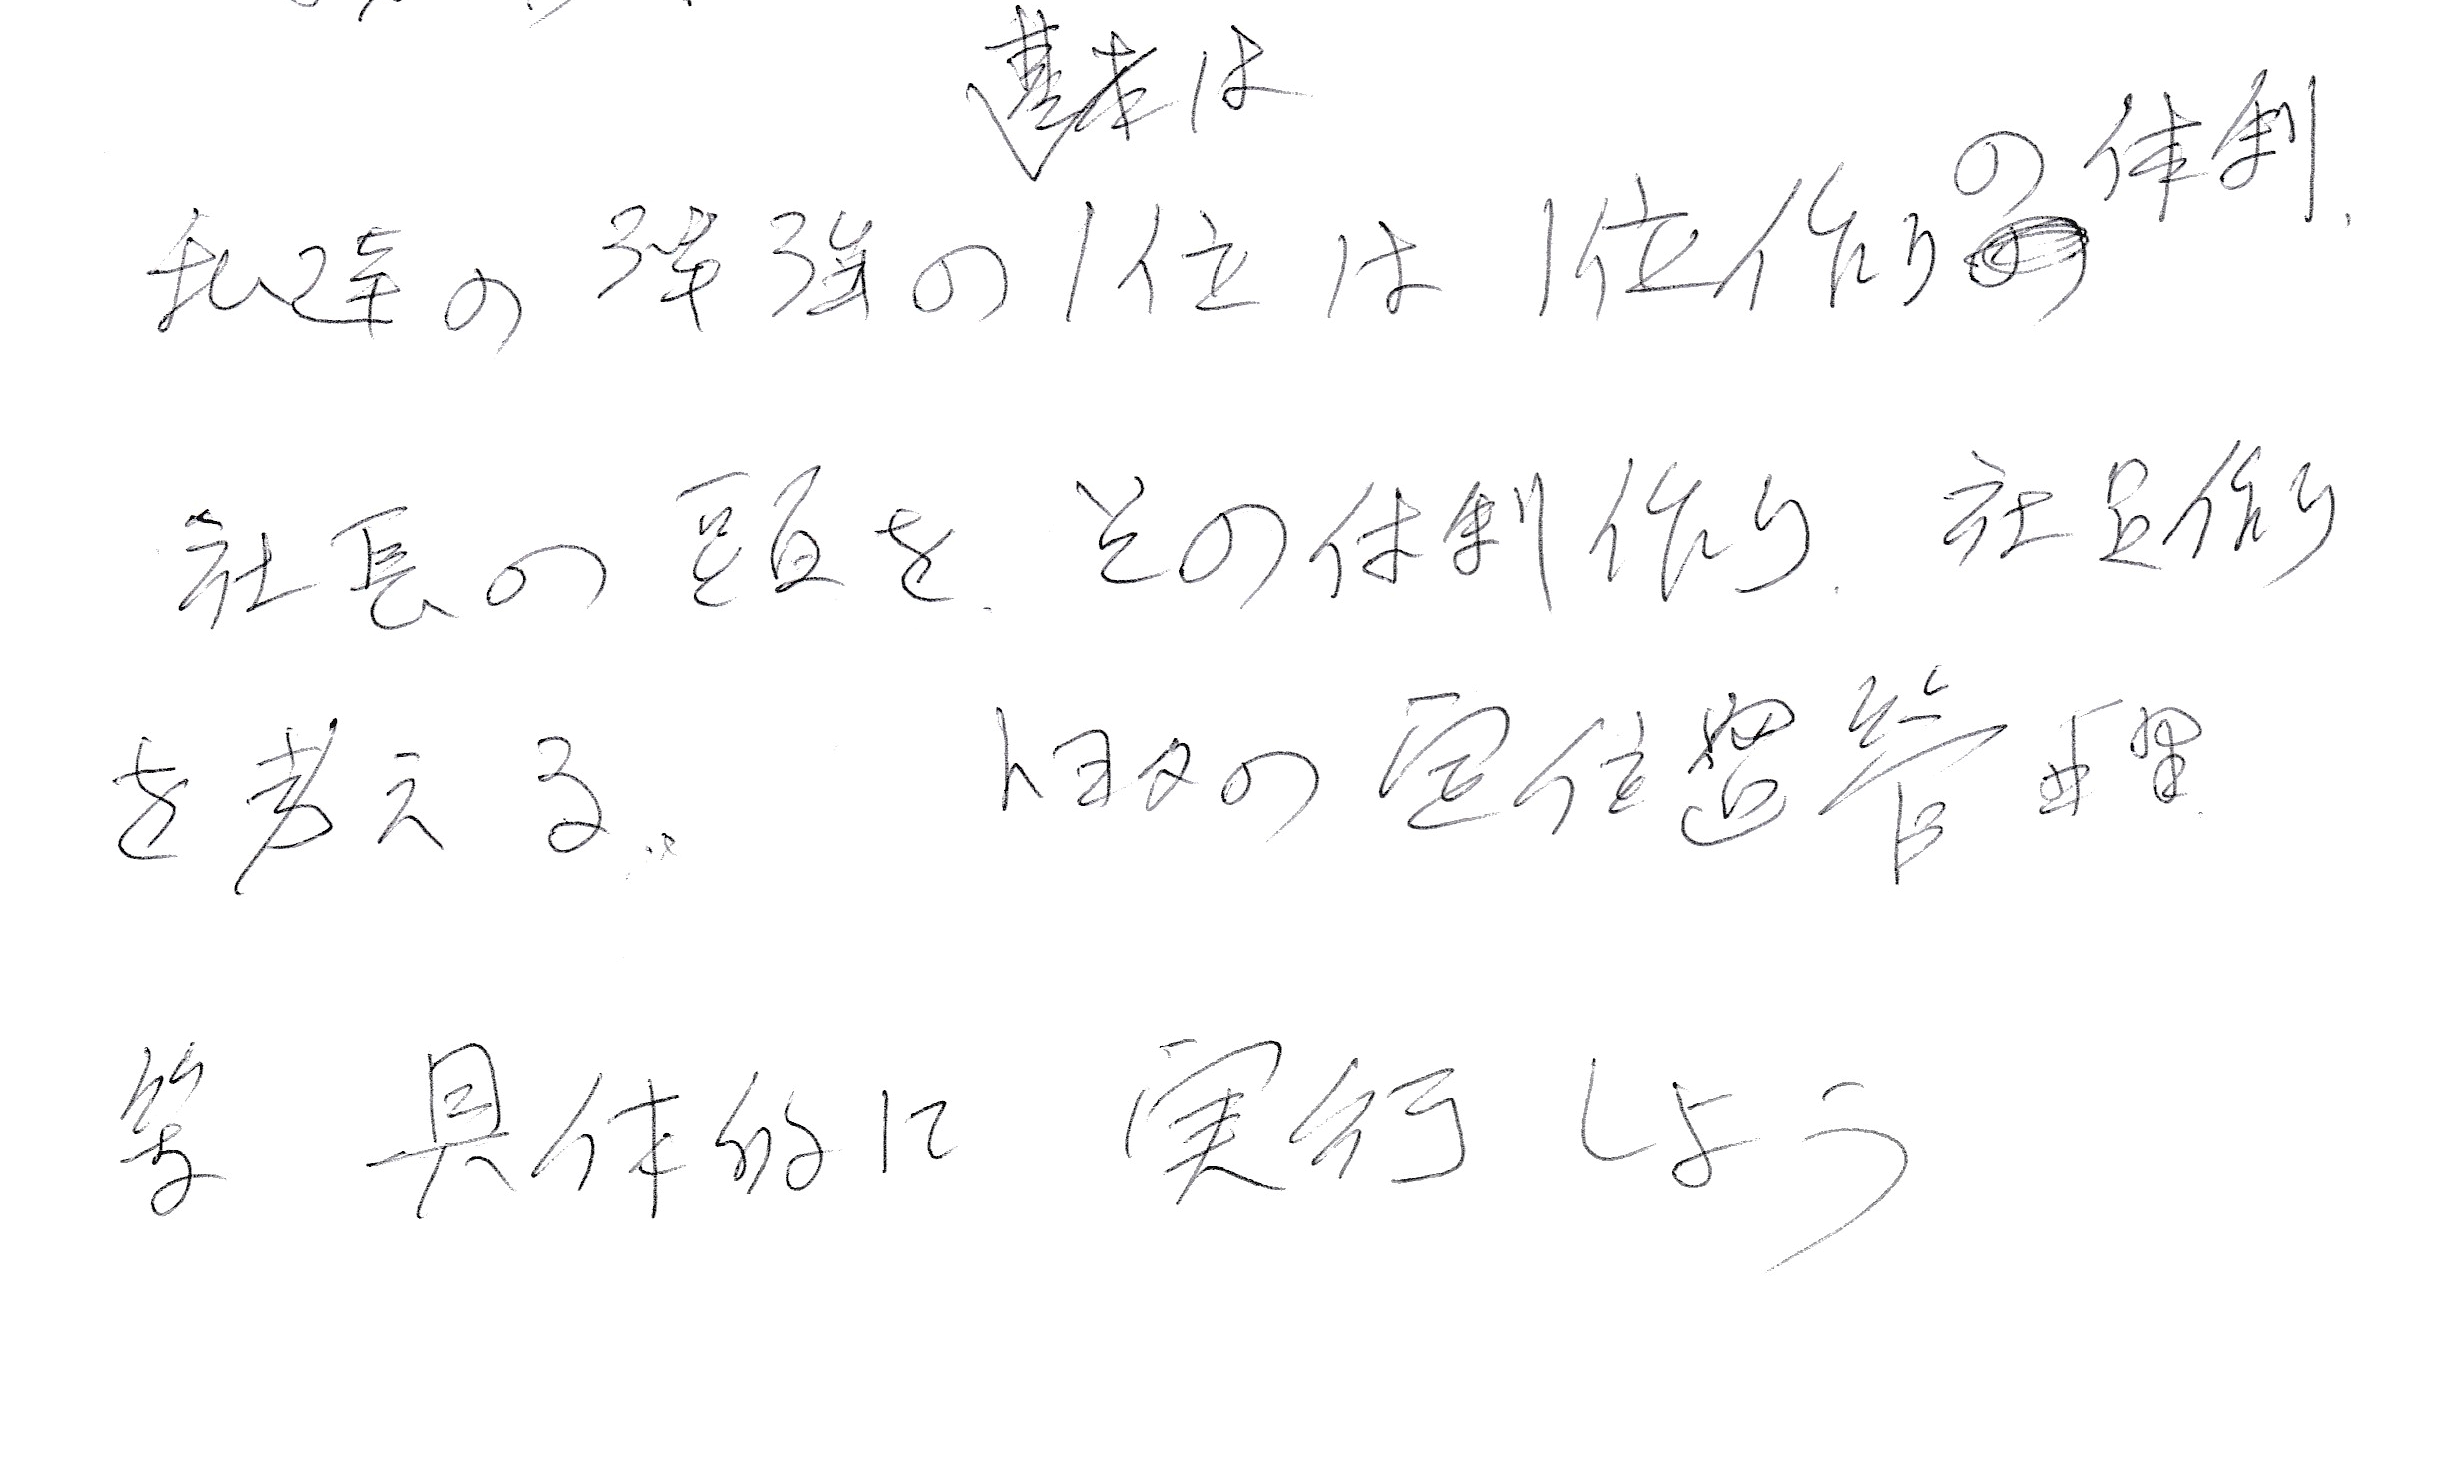 基本は
私達の勉強の1位は1位作りの体制.
社長の頭を、その体制作り、社員作り
を考える。 トヨタの定位置管理
等 具体的に 実行しよう